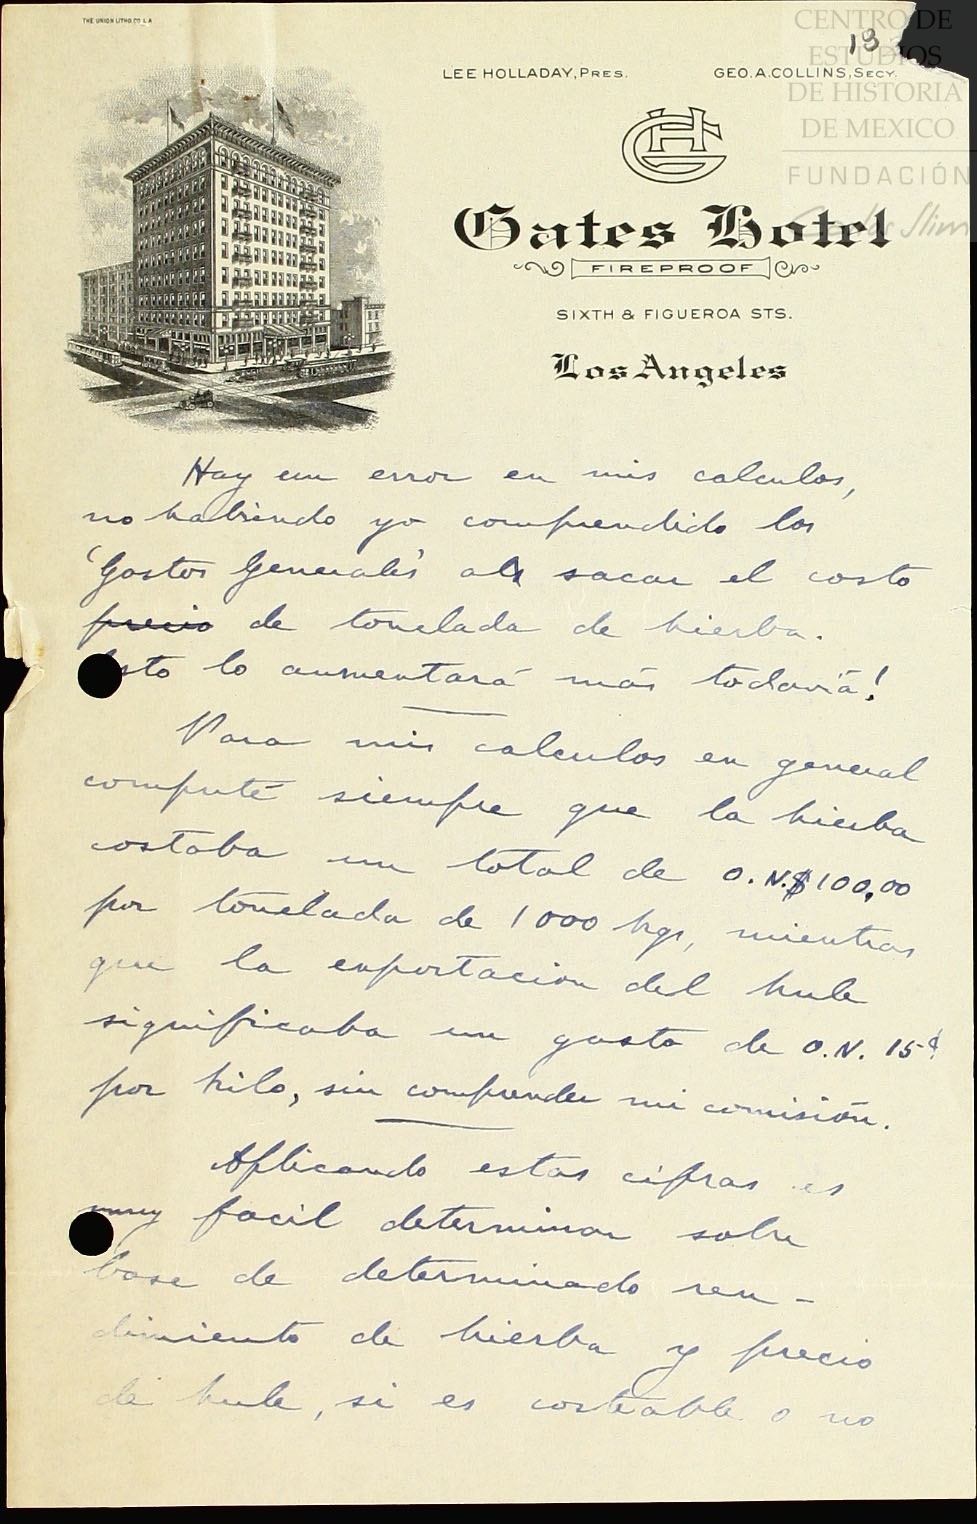 THE UNION LITHO. CO. L.A.
CENTRO DE
ESTUDIOS
DE HISTORIA
DE MEXICO
FUNDACIÓN
Carlos Slim
13
LEE HOLLADAY, PRES.
GEO. A. COLLINS, SECY.
GHC
Gates Hotel
FIREPROOF
SIXTH & FIGUEROA STS.
Los Angeles
Hay un error en mis calculos,
no habiendo yo comprendido los
'Gastos Generales' al sacar el costo
precio de tonelada de hierba.
Esto lo aumentará más todavía!
Para mis calculos en general
computé siempre que la hierba
costaba un total de O.N.$100,00
por tonelada de 1000 kgs, mientras
que la exportacion del hule
significaba un gasto de O.N. 15¢
por kilo, sin comprender mi comisión.
Aplicando estas cifras es
muy facil determinar sobre
base de determinado ren-
dimiento de hierba y precio
de hule, si es costeable o no